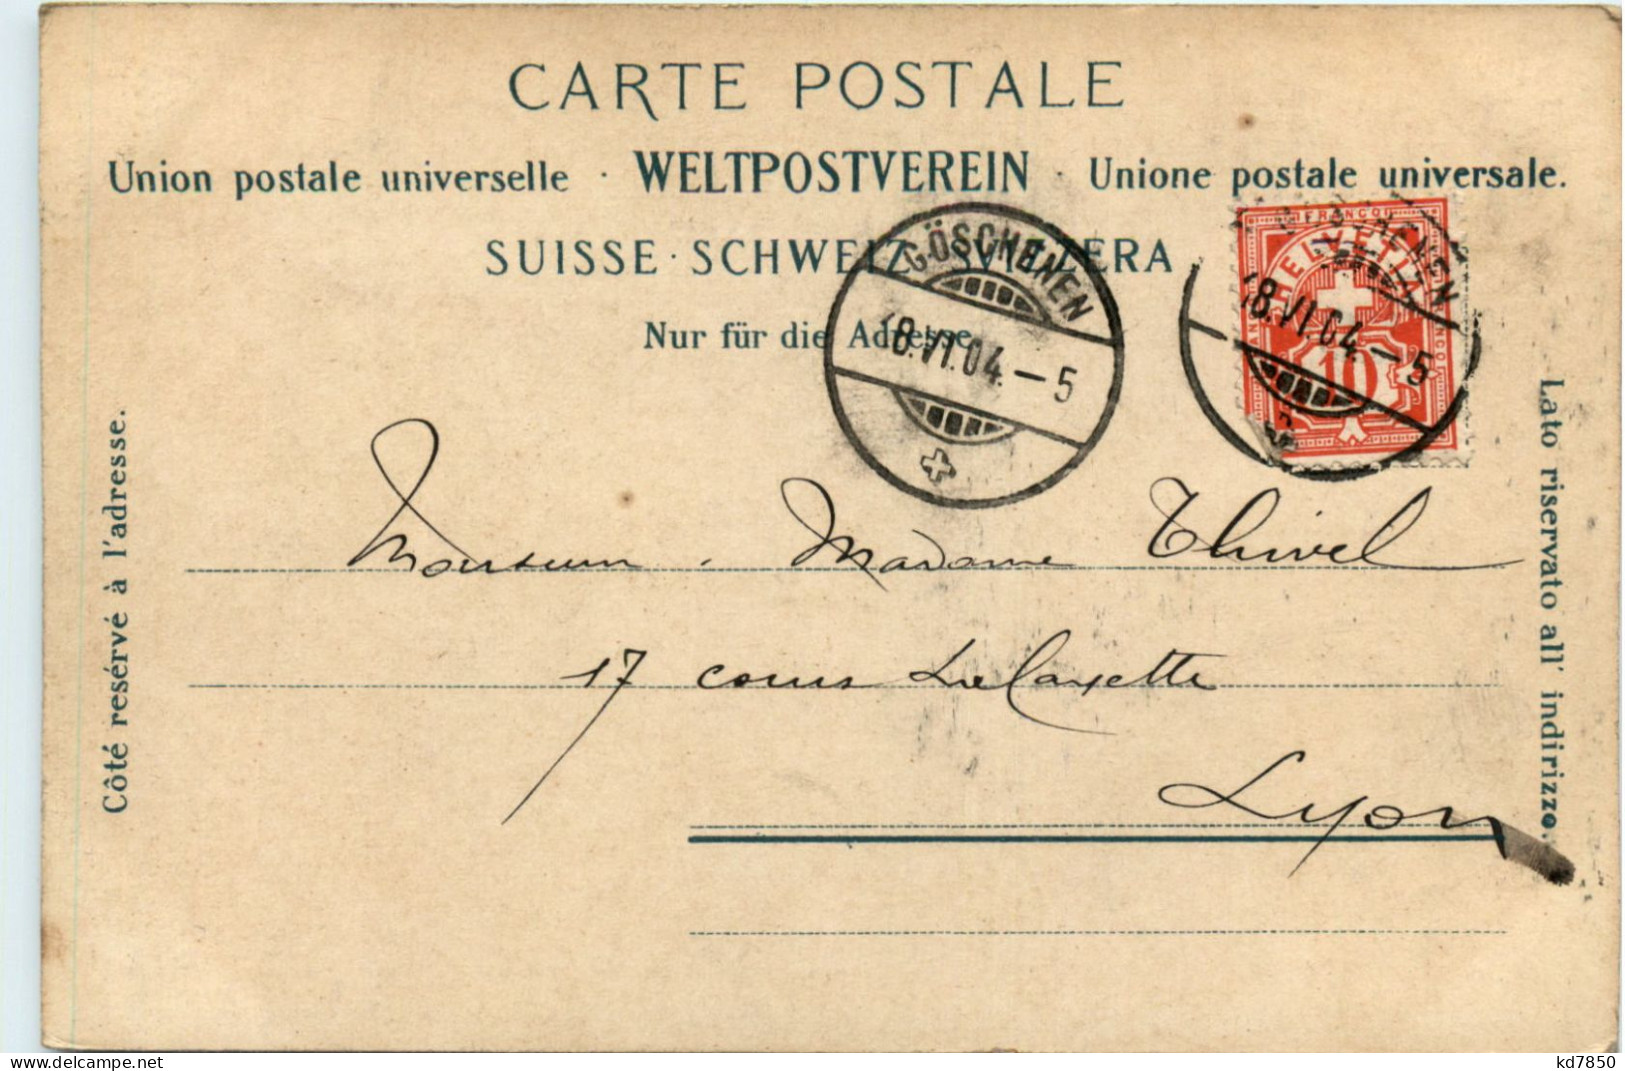 CARTE POSTALE
Union postale universelle · WELTPOSTVEREIN · Unione postale universale.
SUISSE · SCHWEIZ · SVIZZERA
Nur für die Adresse
GÖSCHENEN
18.VI.04.—5
FRANCO
HELVETIA
10
18.VI.04.—5
Côté resérvé à l'adresse.
Lato riservato all' indirizzo.
Monsieur . Madame Thivel
17 cours Lafayette
Lyon
delcampe.net
kd7850